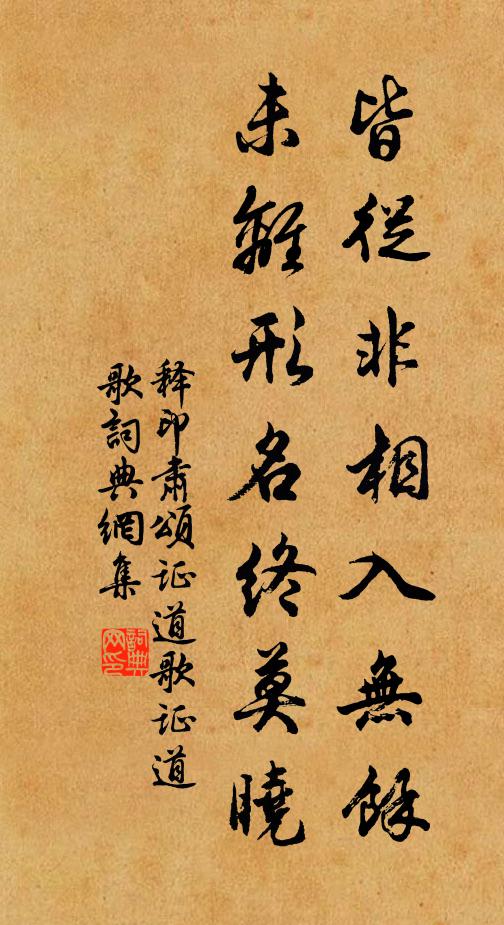 皆從非相入無餘
未離形名終莫曉
释印肅頌证道歌证道
歌詞典網集
詞典网印